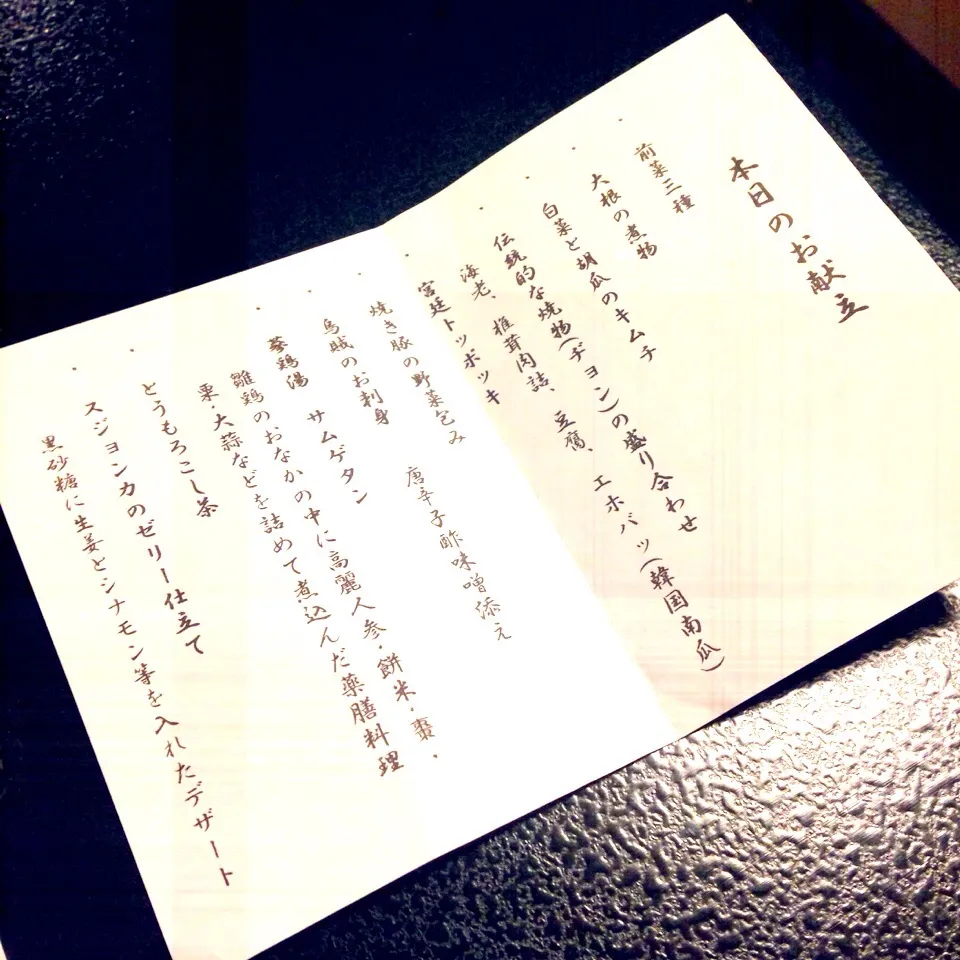 本日のお献立
・前菜三種
・大根の煮物
・白菜と胡瓜のキムチ
・伝統的な焼物(ヂョン)の盛り合わせ
海老、椎茸肉詰、豆腐、エホバッ(韓国南瓜)
・宮廷トッポッキ
・焼き豚の野菜包み
・烏賊のお刺身 唐辛子酢味噌添え
・蔘鶏湯 サムゲタン
雛鶏のおなかの中に高麗人参・餅米・棗・
栗・大蒜などを詰めて煮込んだ薬膳料理
・とうもろこし茶
・スジョンカのゼリー仕立て
黒砂糖に生姜とシナモン等を入れたデザート